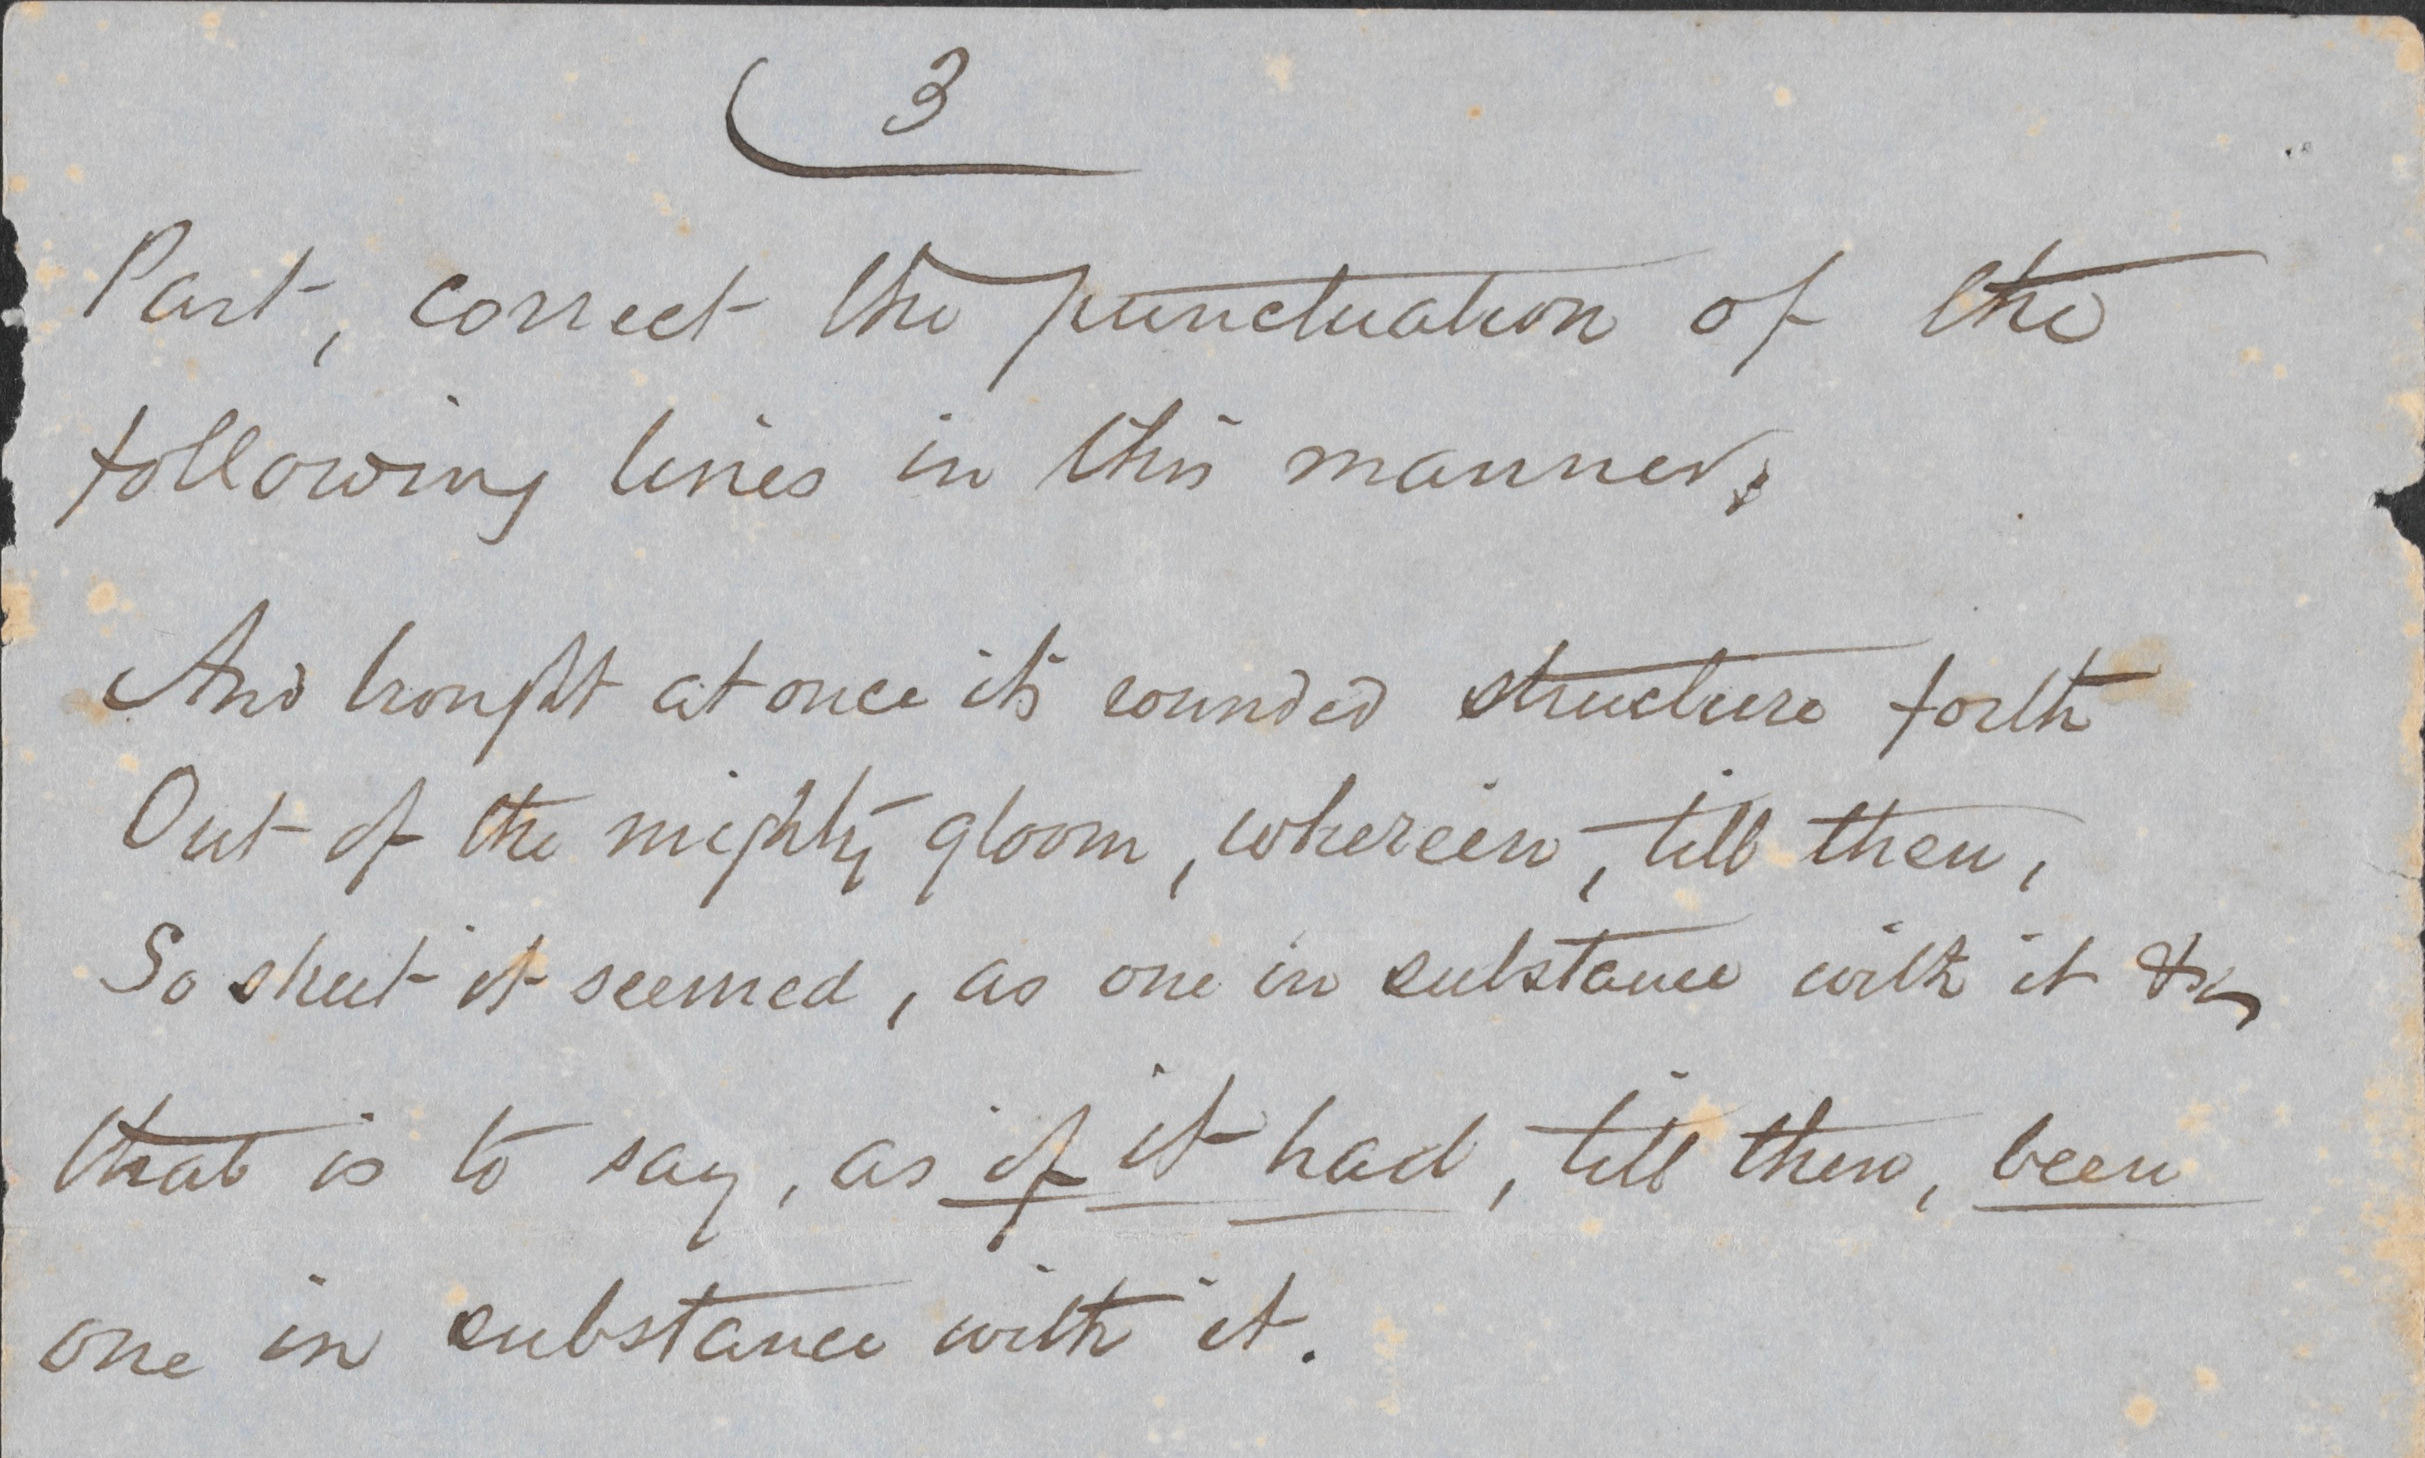 3
Part, correct the punctuation of the
following lines in this manner;
And brought at once its rounded structure forth
Out of the mighty gloom, wherein, till then,
So shut it seemed, as one in substance with it &c
that is to say, as if it had, till then, been
one in substance with it.